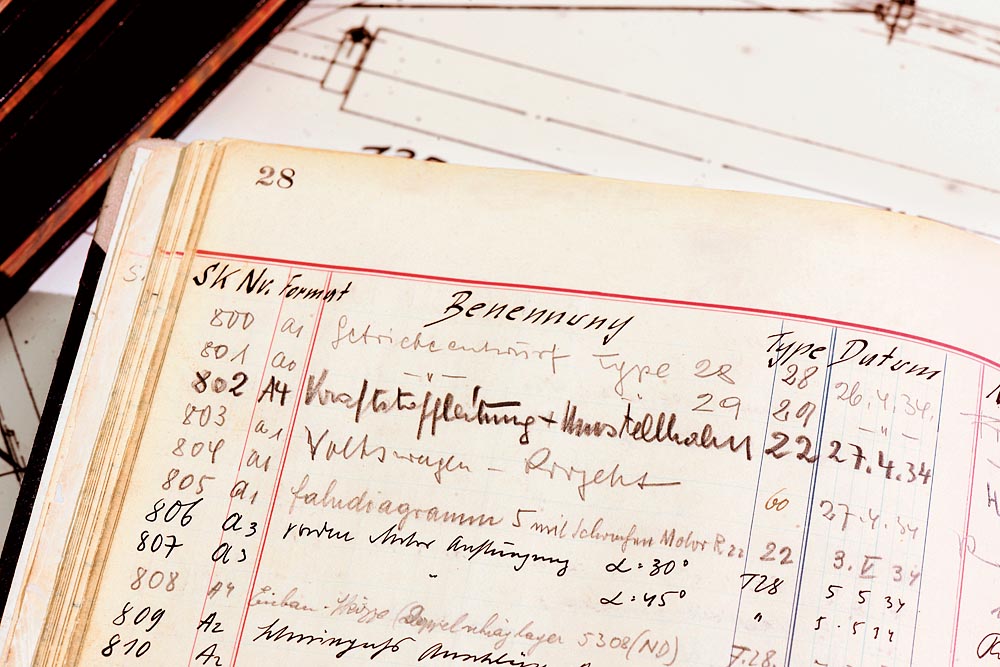 28
SK Nr. Format Benennung Type Datum
800 a1 Getriebeentwurf Type 28 28 26.4.34.
801 a0 — " — 29 29 — " —
802 A4 Kraftstoffleitung + Umstellhahn 22 27.4.34
803 a1 Volkswagen - Projekt 60 27.4.34
804 a1 Fahrdiagramm 5 mit Motor R22 22 3. V 34
805 a1 vordere Motor Aufhängung α = 30° T28 5 5 34
806 a3 " α = 45° " 5. 5 34
807 a3
808 A4 Einbau-Skizze 5308 (ND) T.28.
809 A2
810 A2